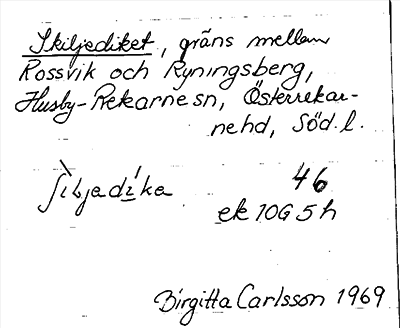 Skiljediket, gräns mellan
Rossvik och Ryningsberg,
Husby-Rekarne sn, Österrekar-
ne hd, Söd. l.
ʃìljadíka
46
ek 10G 5h
Birgitta Carlsson 1969